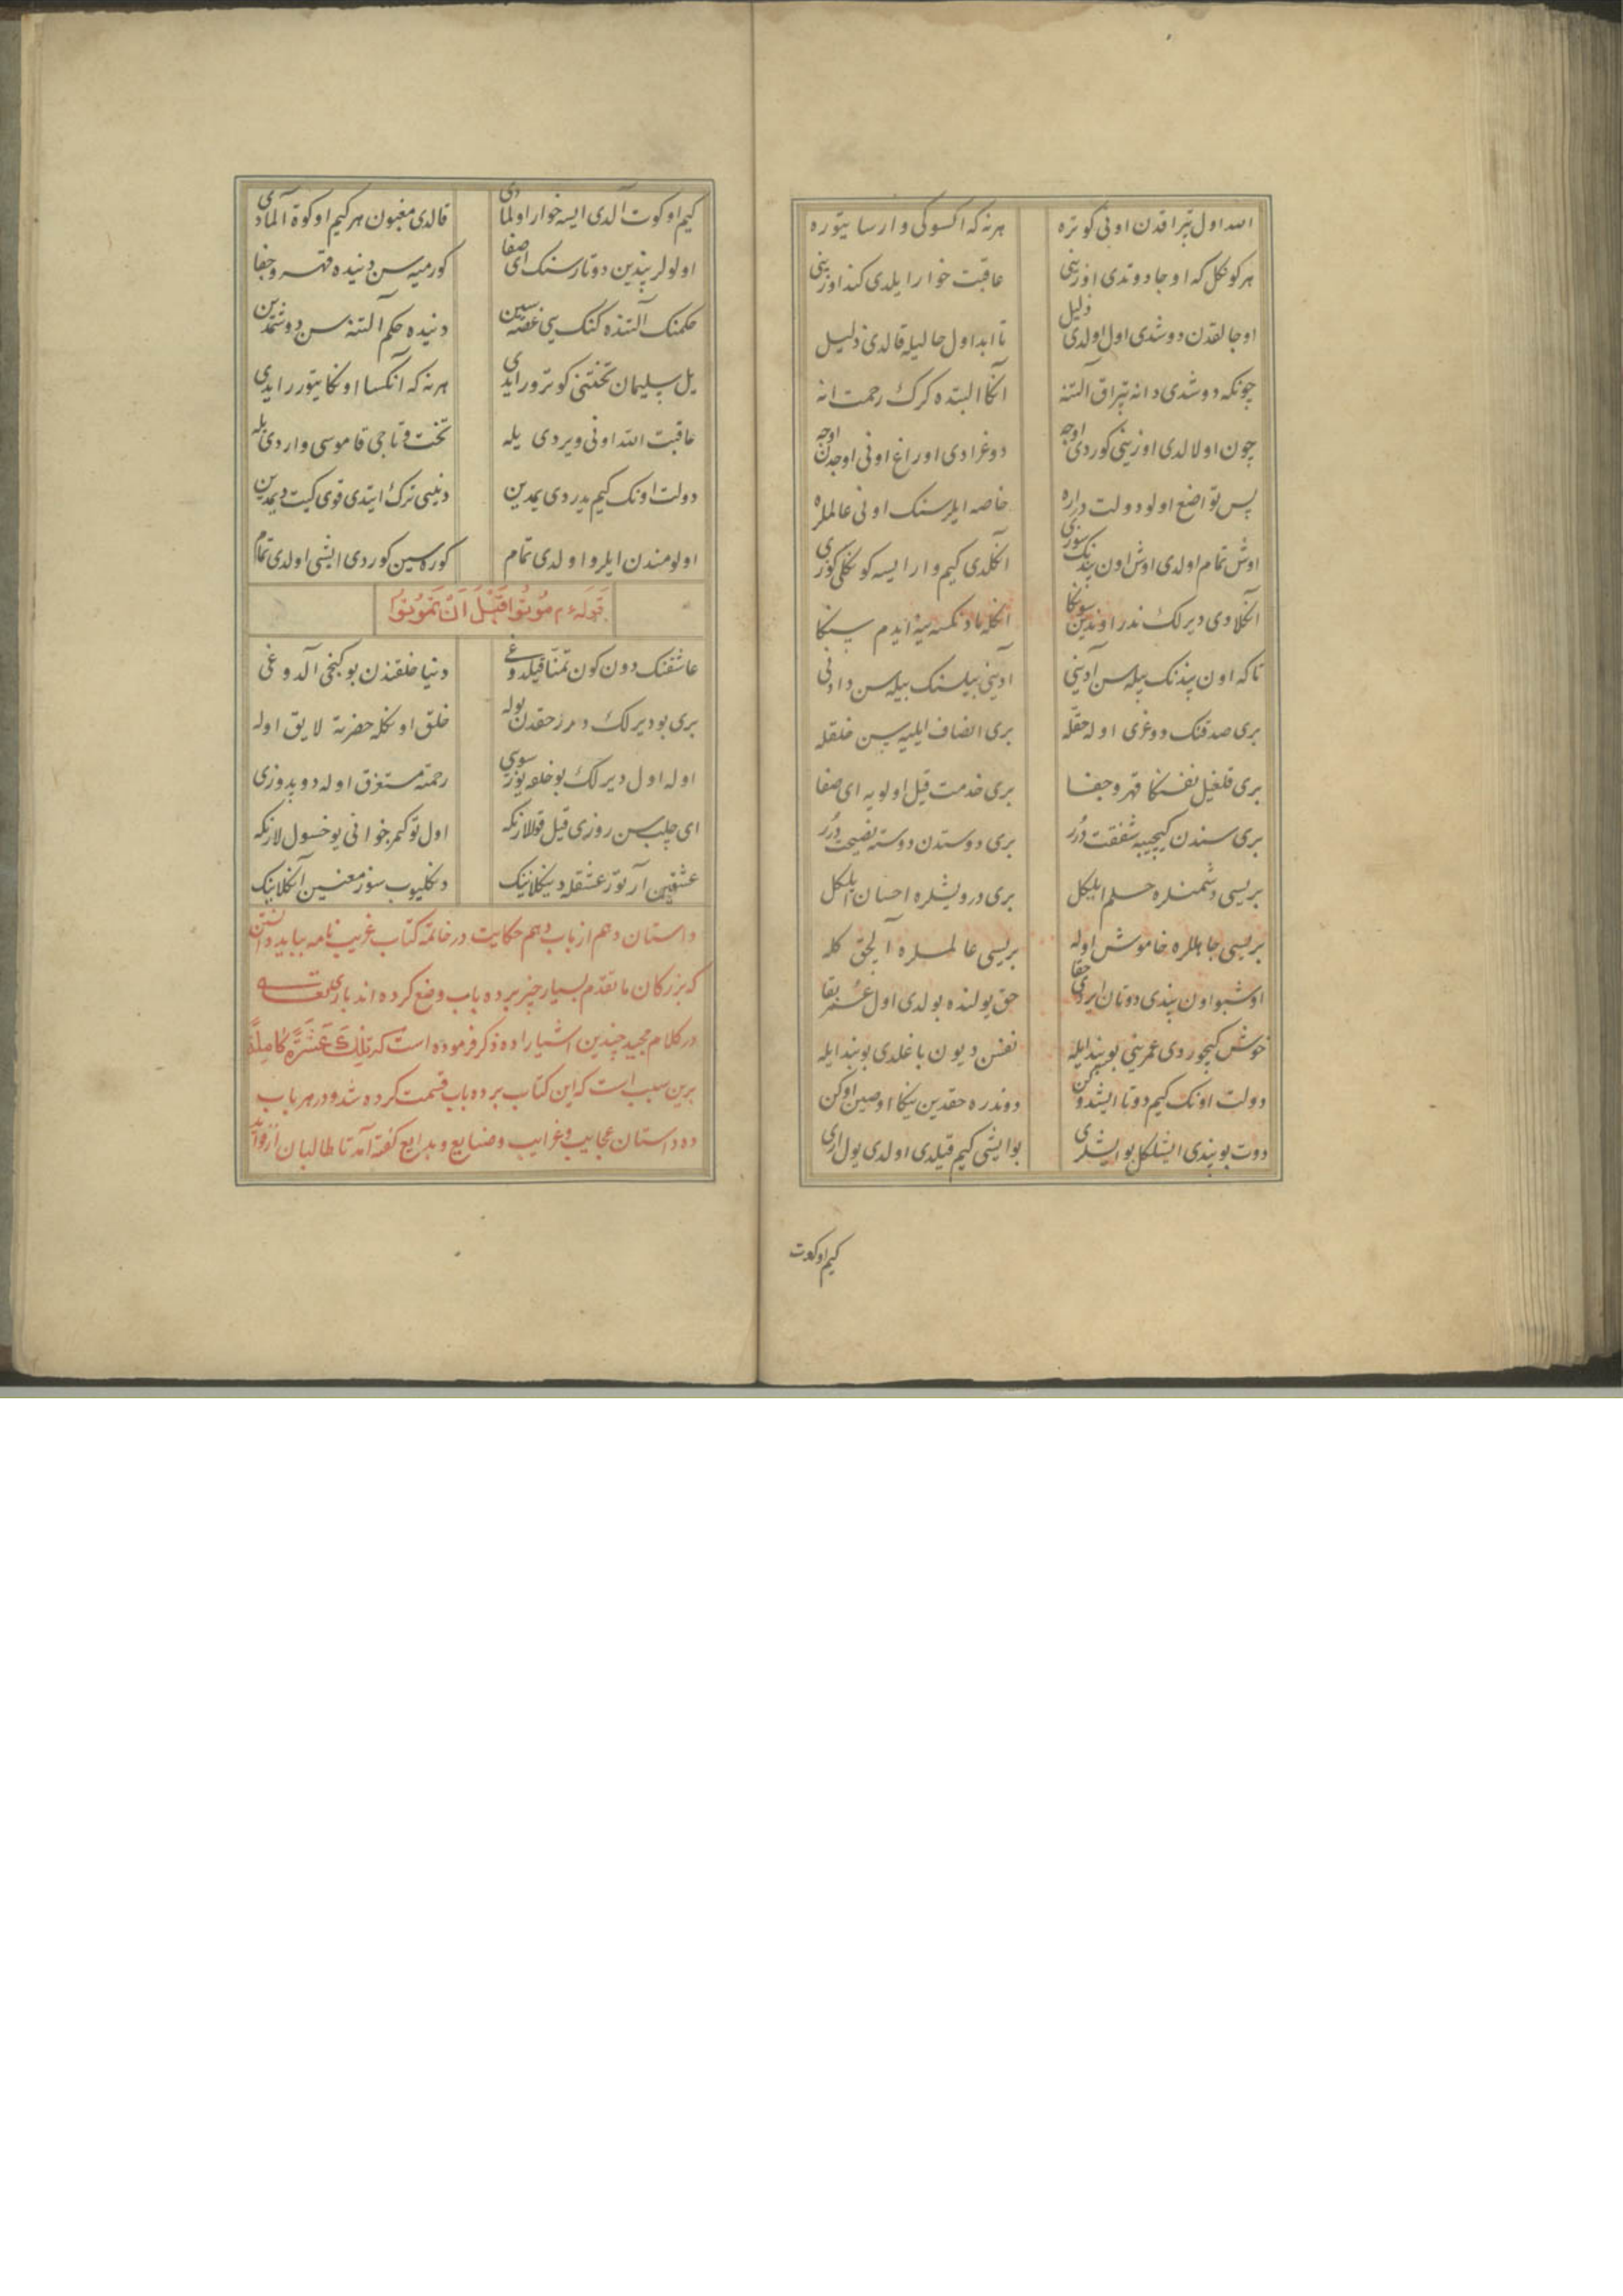 الله اول تپراقدن اونی کوتره هرنه که اکسوکی وارسا یتوره
هرکوکل که اوجا دوتدی اوزینی عاقبت خوار ایلدی کنداوزینی
اوجالقدن دوشدی اول اولدی ذلیل تا ابد اول حالیله قالدی ذلیل
چونکه دوشدی دانه تپراق آلتنه آنکا البته کرک رحمت انه
چون اولالدی اوزینی کوردی اوجه دوغرادی اوراغ اونی اوجدن اوجه
پس تواضع اولو دولت در اره خاصه ایلرسنک اونی عالملره
اوش تمام اولدی اوش اون پندنک سوزی آنکلدی کیم وار ایسه کوکلی کوزی
آنکلادی دیرلک ندر اوندین سونکا
تاکه اون پندنک بیله سن آدینی آدینی بیلسنک بیله سن دادنی
بری صدقنک دوغری اوله حقّله بری انصاف ایلیه سن خلقله
بری قلغیل نفسنکا قهر و جفا بری خدمت قیل اولویه ای صفا
بری سندن کیچییه شفقت دُرر بری دوستدن دوسته نصیحت دُرر
بریسی دشمنلره حلم ایلکل بری درویشلره احسان ایلکل
بریسی جاهللره خاموش اوله بریسی عالملره آلچق کله
اوشبو اون پندی دوتان ایردی حقا حق یولنده بولدی اول عمر بقا
خوش کیچوردی عمرینی بو پندایله نفس دیون باغلدی بو بندایله
دولت اونک کیم دوتا ایشدوکن دوندره حقدین یکا اوصین اوکن
دوت بو پندی ایشلکل بو ایشلری بو ایشی کیم قیلدی اولدی یول اری
کیم اوکوت
کیم اوکوت آلدی ایسه خوار اولمادی قالدی مغبون هرکیم اوکوت آلمادی
اولولر پندین دوتارسنک ای صفا کورمیه سن دنیده قهر و جفا
حکمنک آلتنده کنک سی غصّه سین دنیده حکم آلتنه سن دوشمدین
یل سلیمان تختنی کوترورایدی هرنه که آنکسا اونکا یتوررایدی
عاقبت الله اونی ویردی یله تخت و تاجی قاموسی واردی یله
دولت اونک کیم یدردی یمدین دنییی ترک ایتدی قوی کیت دیمدین
اولومندن ایلرو اولدی تمام کوره سین کوردی ایشی اولدی تمام
قوله ءم مُوتُوا قَبْلَ اَنْ تَمُوتُوا
عاشقنک دون کون تمنّا قیلدوغی دنیا خلقندن بو کنجی آلدوغی
بری بو دیرلک درر حقدن بوله خلق اونکله حضرته لایق اوله
اوله اول دیرلک بو خلقه یوز سویی رحمته مستغرق اوله دوپدوزی
ای چلب سن روزی قیل قوللارنکه اول توکمز خوانی یوخسول لارنکه
عشقین آرتور عشقله دینکلانینک دنکلیوب سوز معنسین آنکلانینک
داستان دهم از باب دهم حکایت در خاتمة کتاب غریب نامه بباید دانستن
که بزرکان ما تقدّم بسیار چیز برده باب وضع کرده اند باری تعالی
در کلام مجید چندین اشیارا ده ذکر فرموده است که تِلْكَ عَشَرَةٌ كَامِلَةٌ
برین سبب است که این کتاب برده باب قسمت کرده شد و در هر باب
ده داستان عجایب و غرایب و صنایع و بدایع کفته آمد تا طالبان را